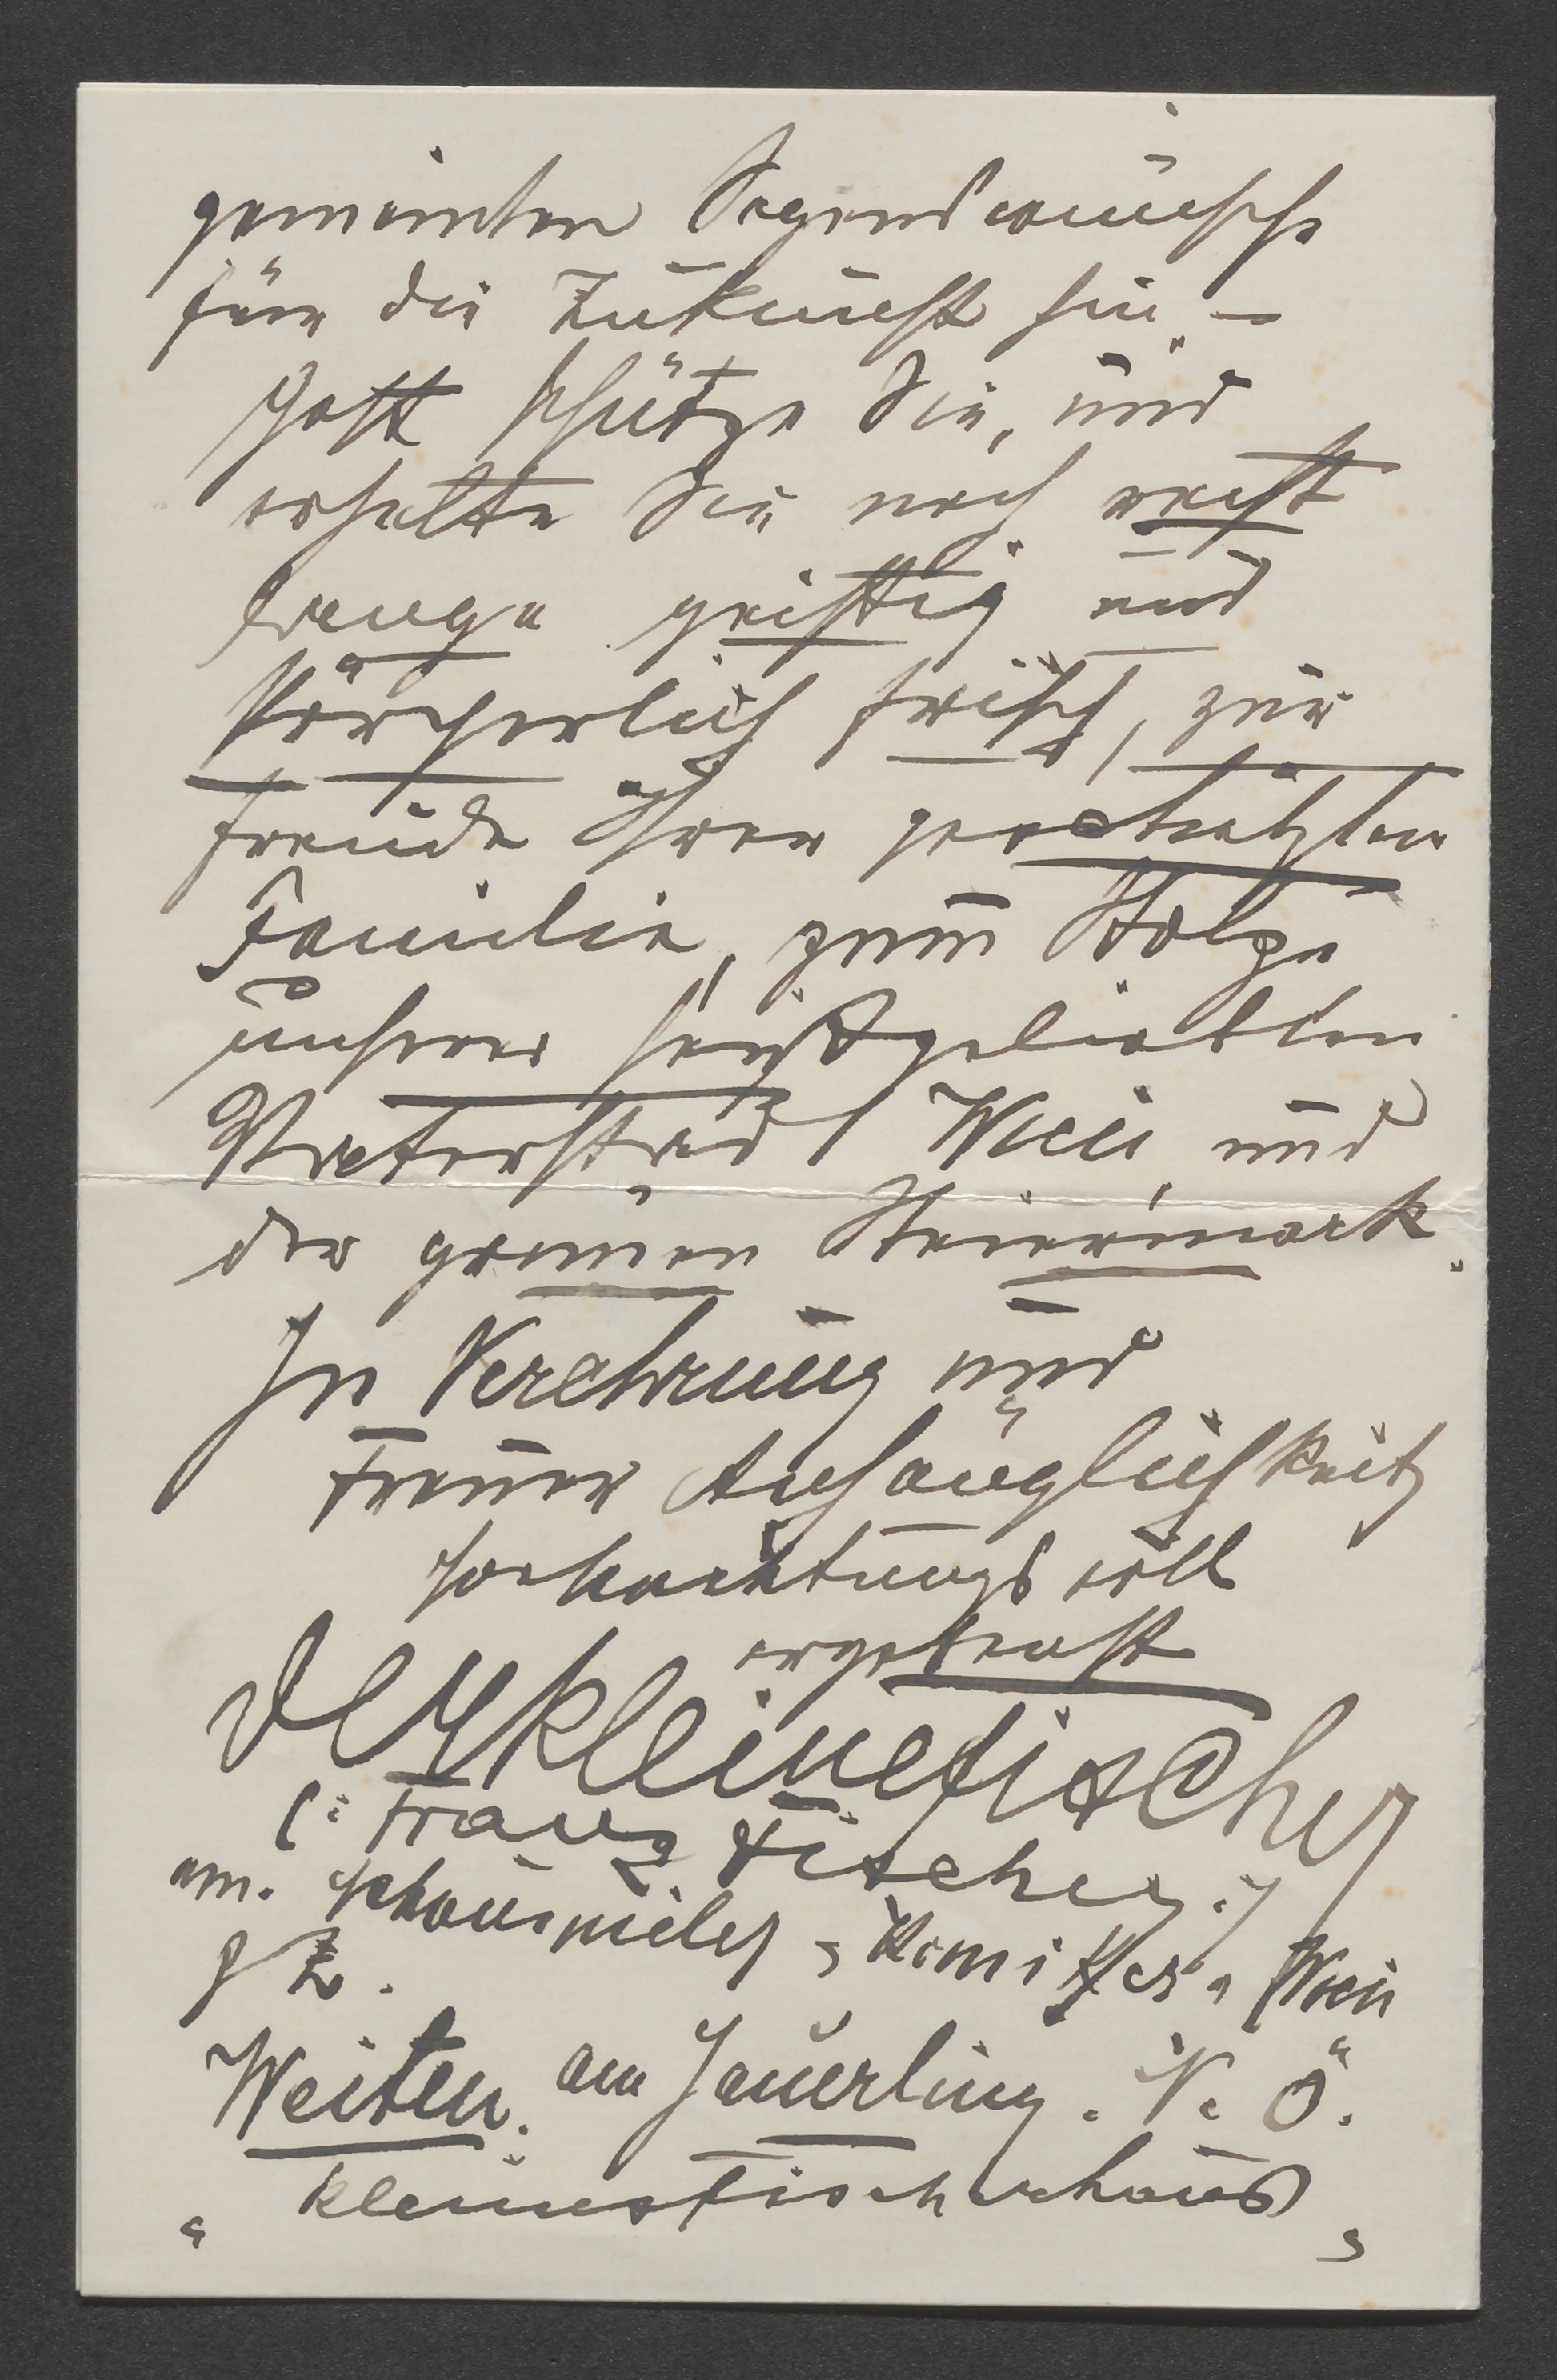 gemeinten Segenswünsche
für die Zukunft hin. –
Gott schütze Sie, und
erhalte Sie noch recht
lange geistig und
körperlich frisch, zur
Freude Ihrer geschätzten
Familie, zum Stolze
unserer heißgeliebten
Vaterstadt Wien und
der grünen Steiermark.
In Verehrung und
treuer Anhänglichkeit
hochachtungsvoll
ergebenst
Der kleine Fischer
(: Franz Fischer :)
em. Schauspieler, Komiker, Wien
z Z.
Weiten. am Jauerling. N. Ö.
„Kleinesfischerhaus"